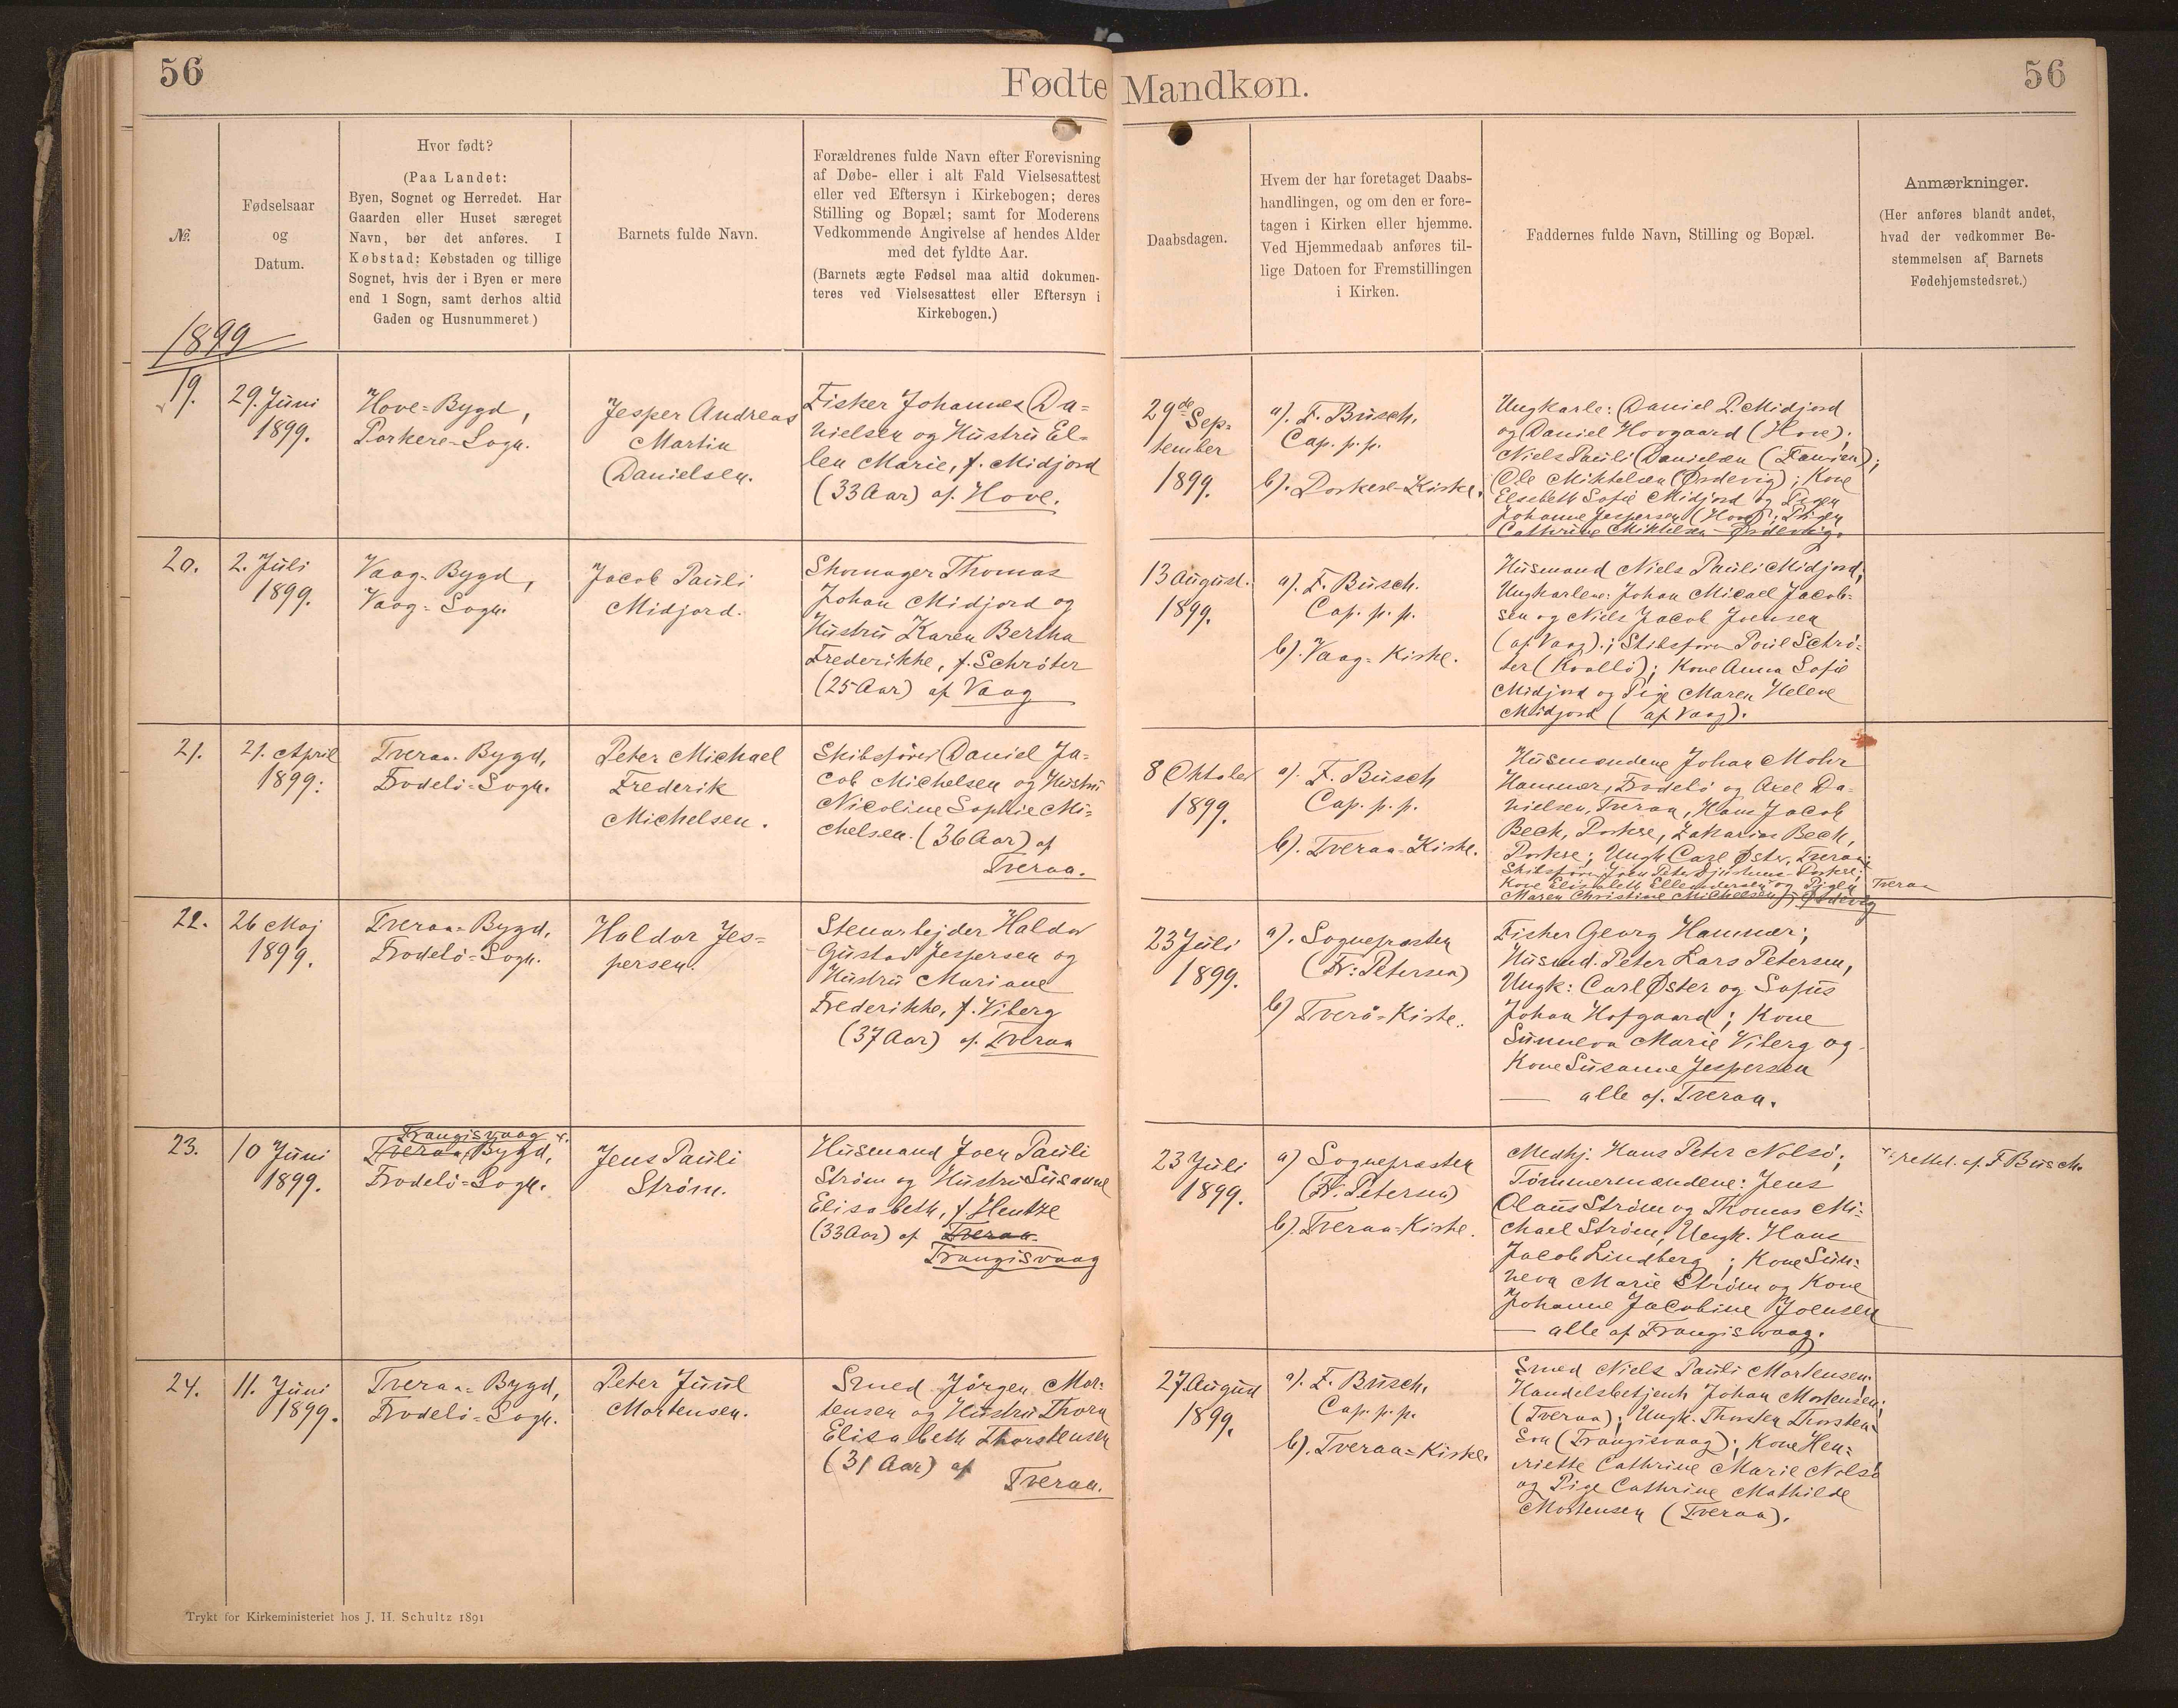 56
Fødte Mandkøn.
56
№
Fødselsaar
og
Datum.
Hvor født?
(Paa Landet:
Byen, Sognet og Herredet. Har
Gaarden eller Huset særeget
Navn, bør det anføres. I
Købstad: Købstaden og tillige
Sognet, hvis der i Byen er mere
end 1 Sogn, samt derhos altid
Gaden og Husnummeret)
Barnets fulde Navn.
Forældrenes fulde Navn efter Forevisning
af Døbe- eller i alt Fald Vielsesattest
eller ved Eftersyn i Kirkebogen; deres
Stilling og Bopæl; samt for Moderens
Vedkommende Angivelse af hendes Alder
med det fyldte Aar.
(Barnets ægte Fødsel maa altid dokumen-
teres ved Vielsesattest eller Eftersyn i
Kirkebogen.)
Daabsdagen.
Hvem der har foretaget Daabs-
handlingen, og om den er fore-
tagen i Kirken eller hjemme.
Ved Hjemmedaab anføres til-
lige Datoen for Fremstillingen
i Kirken.
Faddernes fulde Navn, Stilling og Bopæl.
Anmærkninger.
(Her anføres blandt andet,
hvad der vedkommer Be-
stemmelsen af Barnets
Fødehjemstedsret.)
1899
19.
29. Juni
1899.
Hove=Bygd,
Porkere=Sogn.
Jesper Andreas
Martin
Danielsen.
Fisker Johannes Da=
nielsen og Hustru El=
len Marie, f. Midjord
(33 Aar) af Hove.
29de Sep=
tember
1899.
a). F. Busch.
Cap. p. p.
b). Porkere=Kirke.
Ungkarle: Daniel P. Midjord
og Daniel Hovgaard (Hove);
Niels Pauli Danielsen (Famien);
Ole Mikkelsen (Ørdevig); Kone
Elsebeth Sofie Midjord og Pigen
Johanne Jespersen (Hove); Pigen
Cathrine Mikkelsen Ørdevig.
20.
2. Juli
1899.
Vaag=Bygd,
Vaag=Sogn.
Jacob Pauli
Midjord.
Skomager Thomas
Johan Midjord og
Hustru Karen Bertha
Frederikke, f. Schrøter
(25 Aar) af Vaag
13 August.
1899.
a). F. Busch.
Cap. p. p.
b). Vaag=Kirke.
Husmand Niels Pauli Midjord;
Ungkarlene: Johan Micael Jacob=
sen og Niels Jacob Joensen
(af Vaag).; Skibsfører Poul Schrø=
ter (Kvalbø); Kone Anna Sofie
Midjord og Pige Maren Helene
Midjord (af Vaag).
21.
21. April
1899.
Tveraa=Bygd,
Frodebø=Sogn.
Peter Michael
Frederik
Michelsen.
Skibsfører Daniel Ja=
cob Michelsen og Hustru
Nicoline Sophie Mi=
chelsen. (36 Aar) af
Tveraa.
8 Oktober
1899.
a). F. Busch
Cap. p. p.
b). Tveraa=Kirke.
Husmændene Johan Mohr
Hammer, Frodebø og Axel Da=
nielsen, Tveraa, Hans Jacob
Bech, Porkere, Zakarias Bech,
Porkere; Ungk. Carl Øster, Tveraa;
Kone Elisabeth og Pigen Tveraa
Maren Christine Michelsen; Ørdevig
22.
26 Maj
1899.
Tveraa=Bygd,
Frodebø=Sogn.
Haldor Jes=
persen.
Stenarbejder Haldor
Gustav Jespersen og
Hustru Mariane
Frederikke, f. Viberg
(37 Aar) af Tveraa
23 Juli
1899.
a). Sognepræsten
(Fr: Petersen)
b) Tverå=Kirke.
Fisker Georg Hammer;
Husmd. Peter Lars Petersen,
Ungk: Carl Øster og Sofus
Johan Hofgaard; Kone
Sunneva Marie Viberg og
Kone Susanne Jespersen
— alle af Tveraa.
23.
10 Juni
1899.
Trangisvaag x.
Tveraa, Bygd,
Frodebø=Sogn.
Jens Pauli
Strøm.
Husmand Joen Pauli
Strøm og Hustru Susanne
Elisabeth, f. Hentze
(33 Aar) af Tveraa.
Trangisvaag
23 Juli
1899.
a) Sognepræsten
(Fr. Petersen)
b). Tveraa=Kirke.
Medhj. Hans Peter Nolsø;
Tømmermændene: Jens
Olaus Strøm og Thomas Mi=
chael Strøm; Ungk. Hans
Jacob Lindberg; Kone Sun=
neva Marie Strøm og Kone
Johanne Jacobine Joensen
— alle af Trangisvaag.
x. rettet. af. F Busch.
24.
11. Juni
1899.
Tveraa=Bygd,
Frodebø=Sogn.
Peter Juul
Mortensen.
Smed Jørgen Mor=
tensen og Hustru Thora
Elisabeth Thorstensen
(31 Aar) af
Tveraa.
27. August
1899.
a). F. Busch.
Cap. p. p.
b). Tveraa=Kirke.
Smed Niels Pauli Mortensen;
Handelsbetjent Johan Mortensen;
(Tveraa); Ungk. Thorsten Thorsten=
sen (Trangisvaag); Kone Hen=
riette Cathrine Marie Nolsø
og Pige Cathrine Mathilde
Mortensen (Tveraa).
Trykt for Kirkeministeriet hos J. H. Schultz 1891